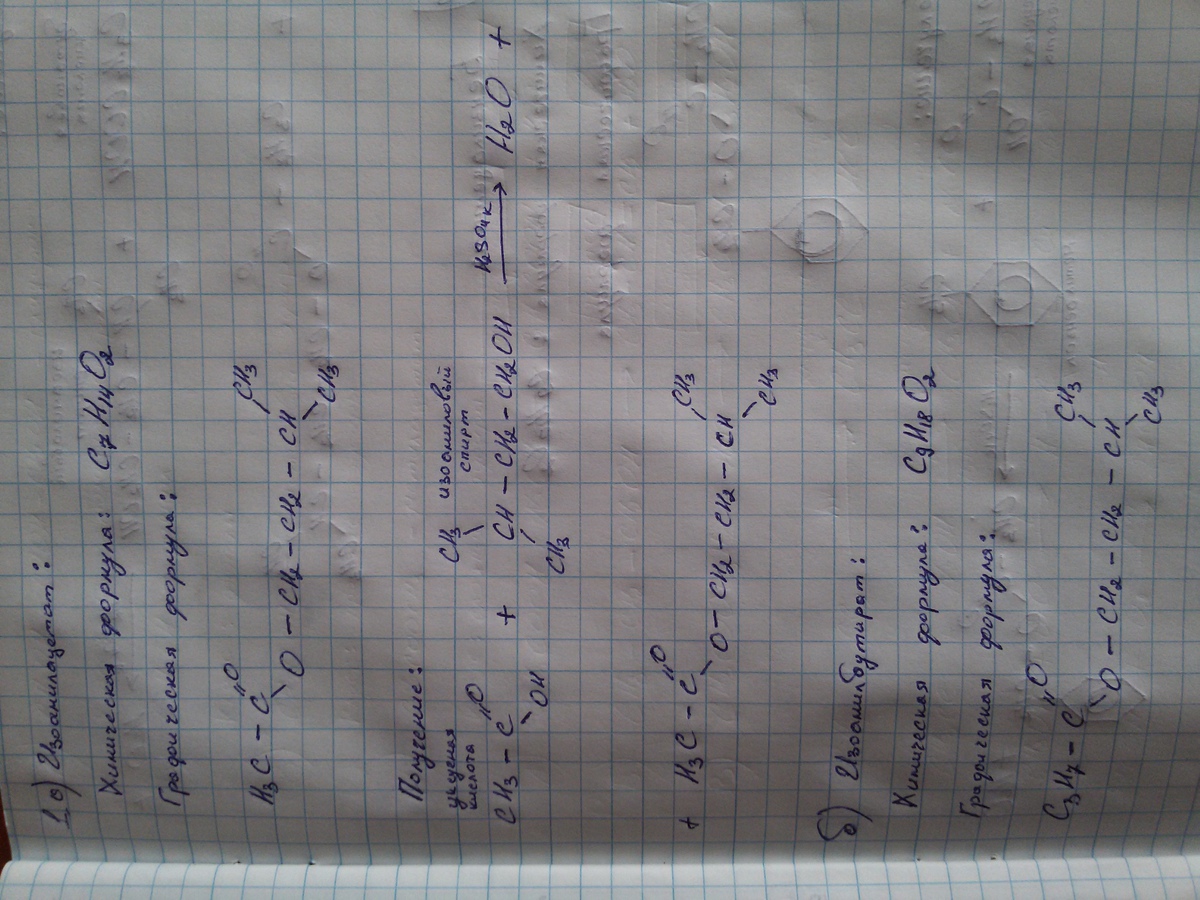 1. а) Изоамилацетат:
Химическая формула: C7H14O2
Графическая формула:
CH3
H3C – C
O
O – CH2 – CH2 – CH
CH3
Получение:
уксусная кислота
CH3 изоамиловый спирт
CH3 – C
O
OH
+ CH – CH2 – CH2OH H2SO4 к → H2O +
CH3
+ H3C – C
O
O – CH2 – CH2 – CH
CH3
CH3
б) Изоамилбутират:
Химическая формула: C9H18O2
Графическая формула:
C3H7 – C
O
O – CH2 – CH2 – CH
CH3
CH3